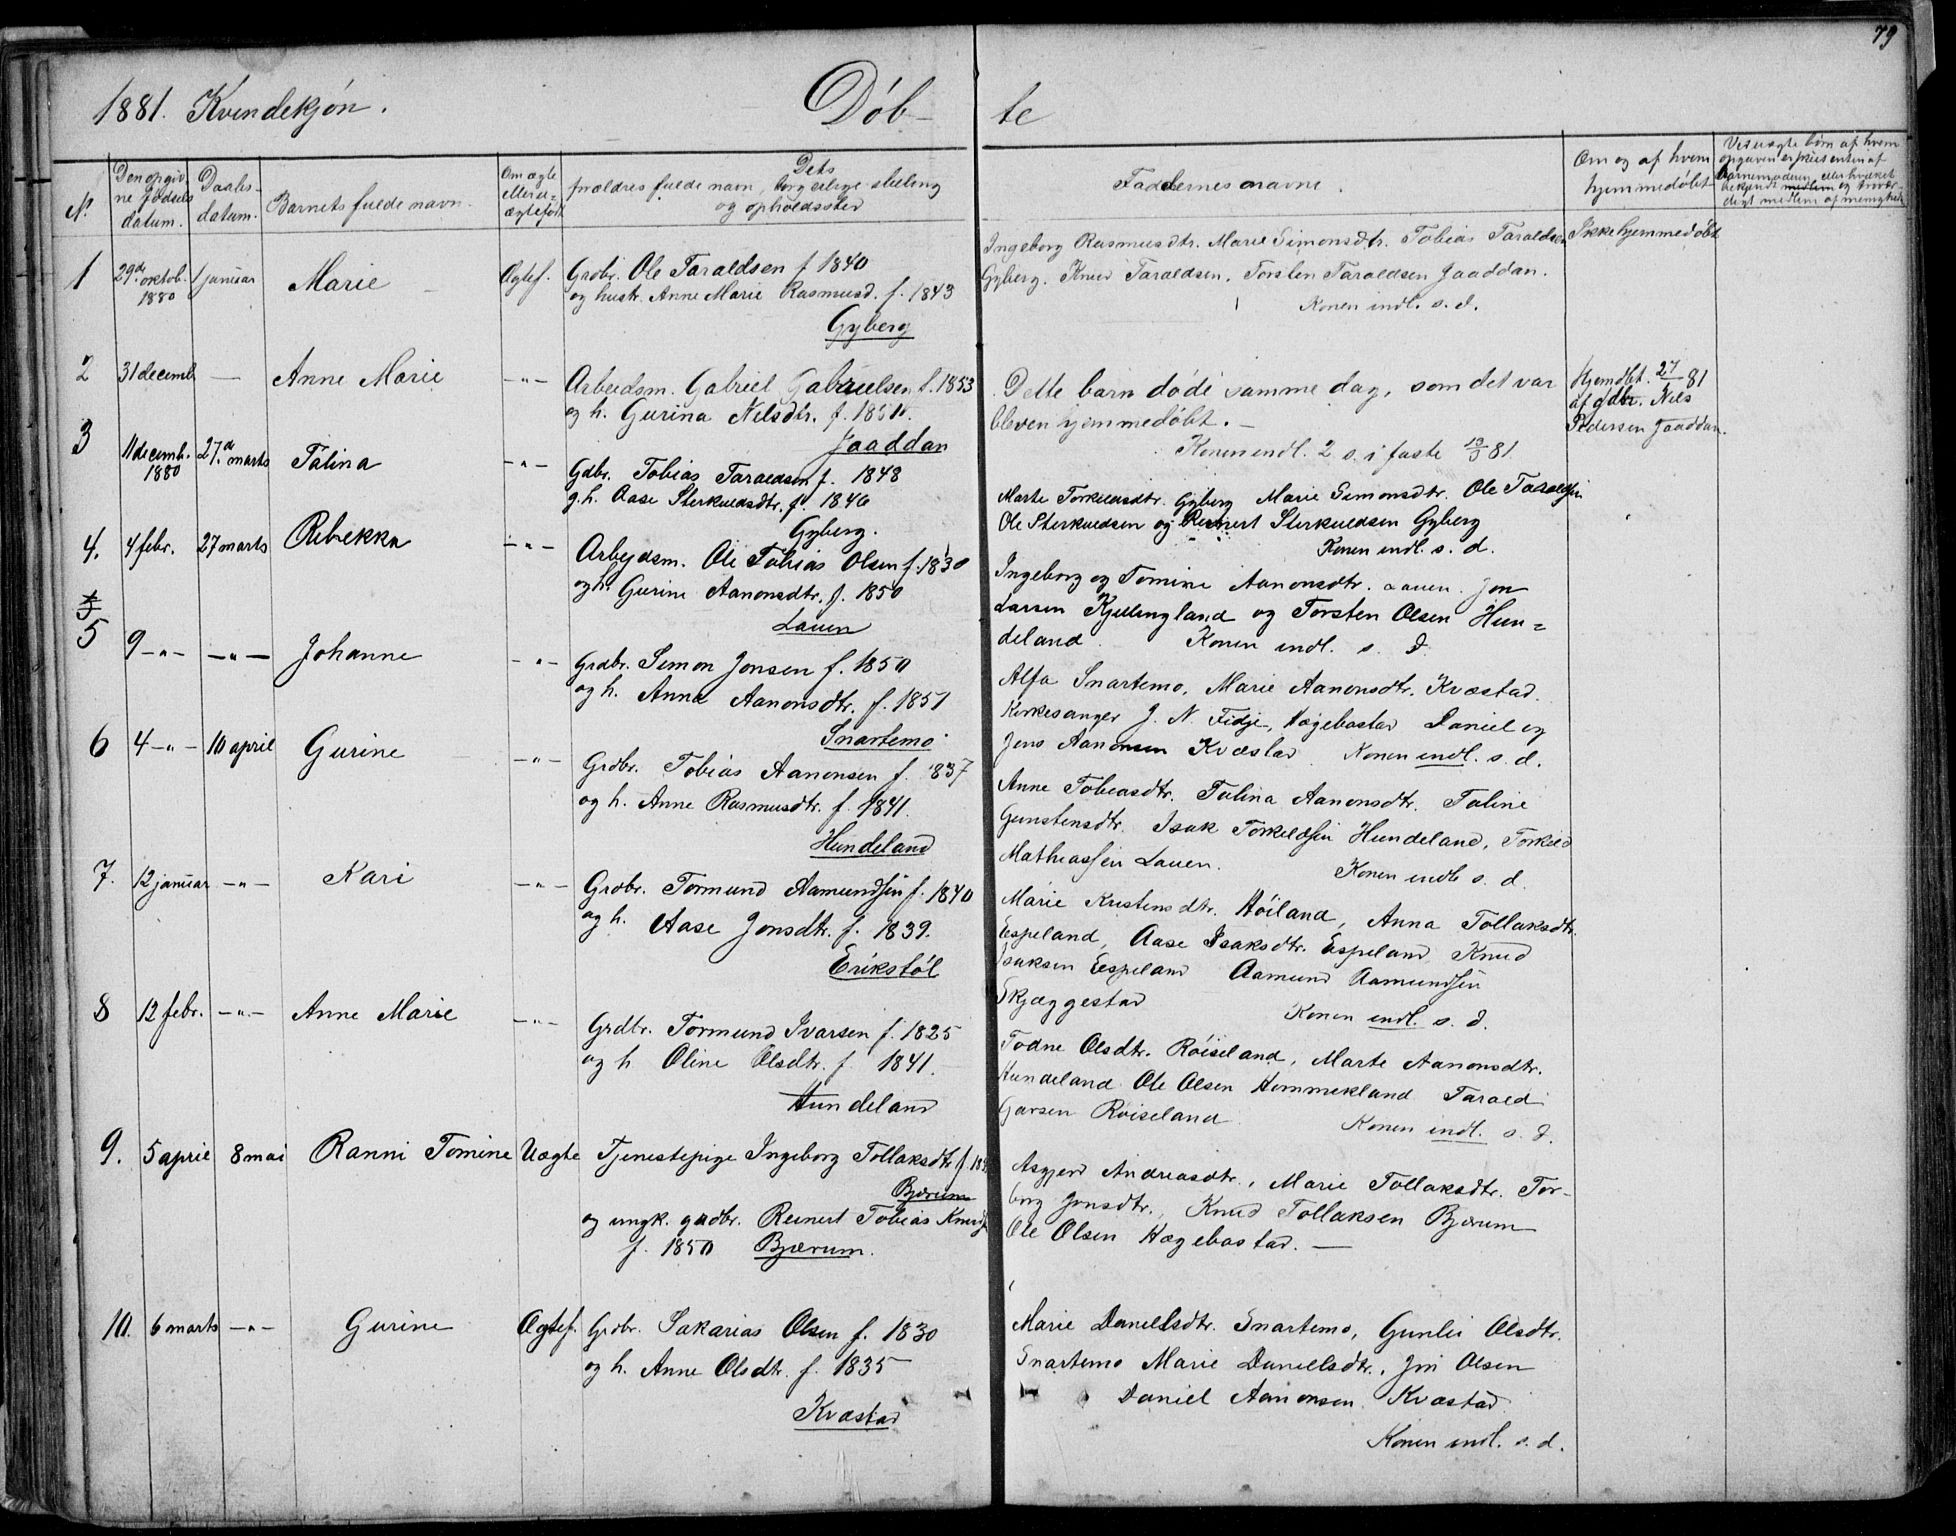 79
1881. Kvindekjøn. Døb- te
No.
Den opgiv-
ne fødsels
datum.
Daabs-
datum.
Barnets fulde navn.
Om ægte
eller u-
ægtefødt
Dets
forældres fulde navn, borgerlige stilling
og opholdssted
Faddernes navne.
Om og af hvem
hjemmedøbt
Ved uægte børn af hvem
opgaven er præsenten af
Barnemoderen eller hvilket
bekjendt medlem og trovær-
digt medlem af menighed
1
29de oktob.
1880
1 januar
Marie
Ægtef.
Grdbr. Ole Taraldsen f 1840
og hustr. Anne Marie Rasmusd. f. 1843
Gyberg
Ingeborg Rasmusdtr. Marie Simonsdtr. Tobias Taraldsen
Gyberg. Knud Taraldsen, Torsten Taraldsen Jaaddan.
Konen indl. s. d.
Ikke hjemmedøbt
2
31 decemb
—
Anne Marie
-"-
Arbeidsm. Gabriel Gabrielsen f. 1853
og h. Gurina Nilsdtr. f. 1851.
Jaaddan
Dette barn døde samme dag, som det var
bleven hjemmedøbt. -
Konen indl. 2 s. i faste 13/3 81.
Hjemdbt. 27/1 81
af gdbr. Nils
Pedersen Jaaddan.
3
11 decemb.
1880
27.d marts
Talina
-"-
Gdbr. Tobias Taraldsen f. 1848
g. h. Aase Sterkuldsdtr. f. 1846
Gyberg.
Marte Torkildsdtr. Gyberg Marie Simonsdtr. Ole Taraldsen
Ole Sterkuldsen og Reinert Sterkuldsen Gyberg
Konen indl. s. d.
4.
4 febr.
27 marts
Rebekka
-"-
Arbejdsm. Ole Tobias Olsen f. 1830
og h. Gurine Aanonsdtr. f. 1850
Lauen
Ingeborg og Tomine Aanonsdtr. Lauen. Jon
Larsen Kjellingland og Torsten Olsen Hun-
deland. Konen indl. s. d.
5
9 -"-
-"-
Johanne
-"-
Grdbr. Simon Jonsen f. 1850
og h. Anna Aanonsdtr. f. 1851
Snartemo
Alfa Snartemo, Marie Aanonsdtr. Kvæstad.
Kirkesanger J. N. Fidje, Hægebostad Daniel og
Jens Aanonsen Kvæstad. Konen indl. s. d.
6
4 -"-
10 april
Gurine
-"-
Grdbr. Tobias Aanonsen f. 1837
og h. Anne Rasmusdtr. f. 1841.
Hundeland
Anne Tobiasdtr. Talina Aanonsdtr. Taline
Gunstensdtr. Isak Torkeldsen Hundeland, Torkild
Mathiassen Lauen. Konen indl. s. d.
7.
12 januar
-"-
Kari
-"-
Grdbr. Tormund Aamundsen f. 1840
og h. Aase Jonsdtr. f. 1839.
Erikstøl
Marie Kristensdtr. Høiland, Anna Tollaksdtr.
Espeland, Aase Isaksdtr. Espeland Knud
Isaksen Espeland Aamund Aamundsen
Skjæggestad Konen indl. s. d.
8
12 febr.
-"-
Anne Marie
-"-
Grdbr. Tormund Ivarsen f. 1825
og h Oline Olsdtr. f 1841.
Hundeland
Todne Olsdtr. Røiseland, Marte Aanonsdtr.
Hundeland Ole Olsen Hommekland Tarald
Garsen Røiseland. Konen indl. s. d.
9.
5 april
8 mai
Ranni Tomine
Uægte
Tjenestepige Ingeborg Tollaksdtr f. 18
Bjærum
og ungk. gaardbr. Reinert Tobias Knuds
f. 1850 Bjærum.
Asgjerd Andreasdtr., Marie Tollaksdtr. Tor-
borg Jonsdtr., Knud Tollaksen Bjærum
Ole Olsen Hægebostad. —
10.
6 marts
-"-
Gurine
Ægtef.
Grdbr. Sakarias Olsen f. 1830
og h. Anne Olsdtr. f. 1835
Kvæstad
Marie Danielsdtr. Snartemo, Gunlei Olsdtr.
Snartemo Marie Danielsdtr., Jon Olsen
Daniel Aanonsen Kvæstad
Konen indl. s. d.